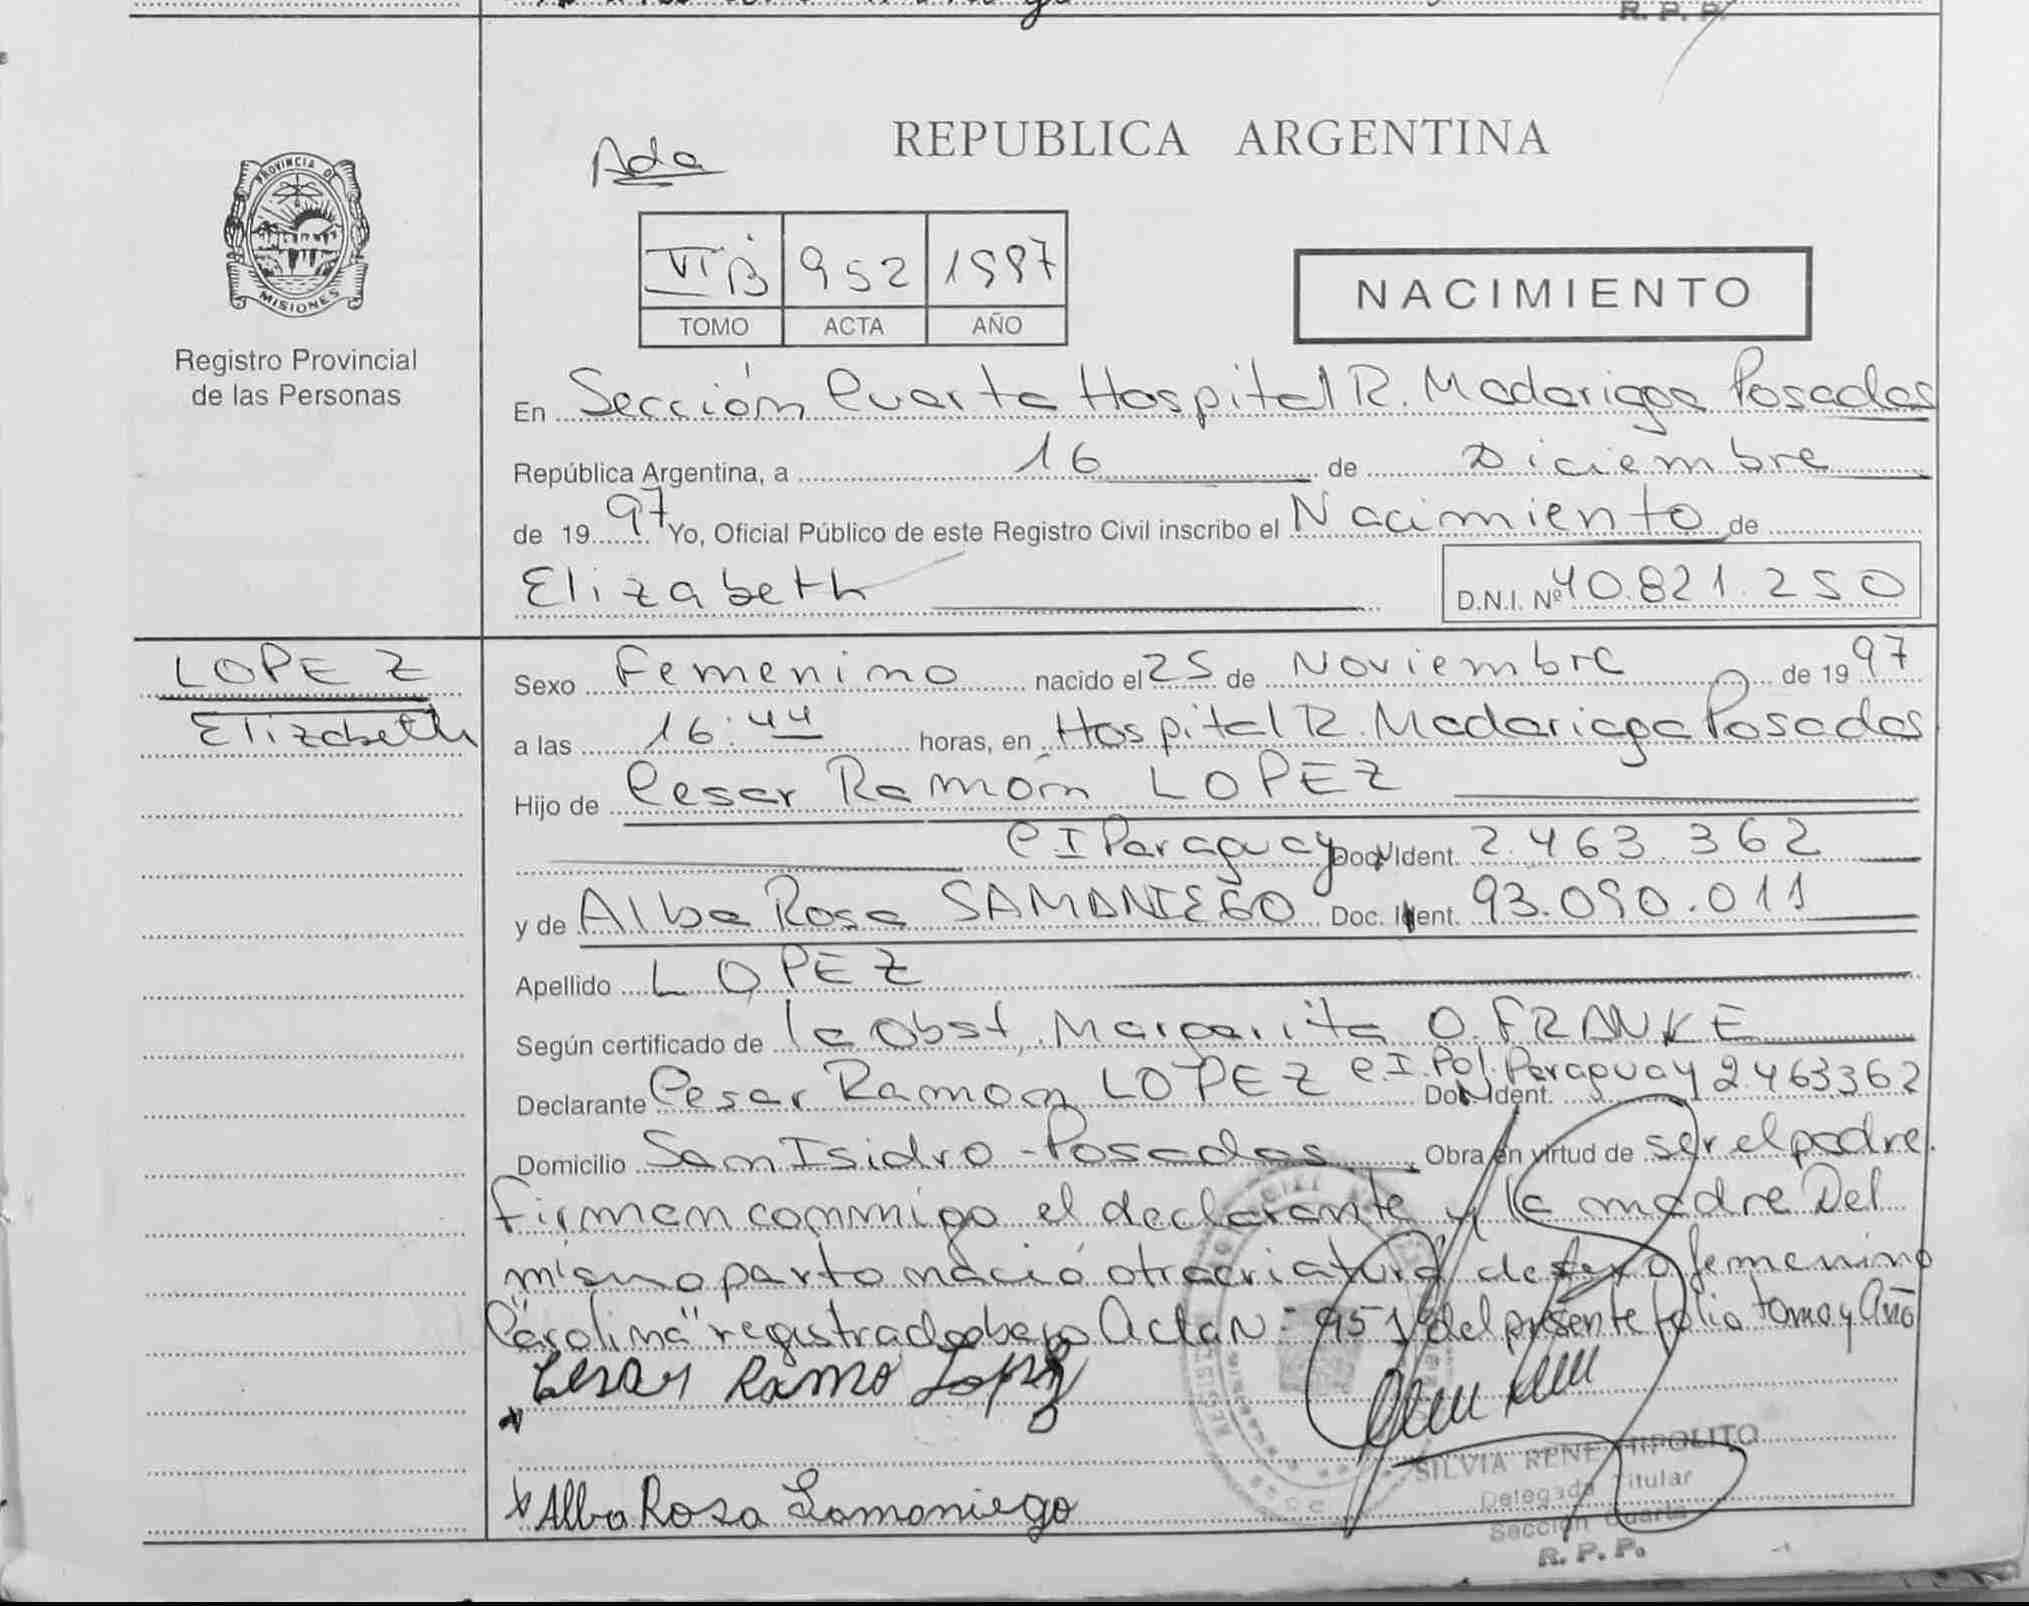 R. P. P.
Ada
REPUBLICA ARGENTINA
PROVINCIA DE
MISIONES
Registro Provincial
de las Personas
VI B 952 1997
TOMO ACTA AÑO
NACIMIENTO
En Sección Cuarta Hospital R. Madariaga Posadas
República Argentina, a 16 de Diciembre
de 1997 Yo, Oficial Público de este Registro Civil inscribo el Nacimiento de
Elizabeth D.N.I. Nº 40.821.250
LOPEZ
Elizabeth
Sexo Femenino nacido el 25 de Noviembre de 1997
a las 16:44 horas, en Hospital R. Madariaga Posadas
Hijo de Cesar Ramón LOPEZ
C I Paraguay Doc. Ident. 2.463.362
y de Alba Rosa SAMANIEGO Doc. Ident. 93.090.011
Apellido LOPEZ
Según certificado de la Obst. Margarita O. FRANKE
Declarante Cesar Ramon LOPEZ C.I. Pol. Paraguay Doc. Ident. 2.463362
Domicilio San Isidro - Posadas Obra en virtud de ser el padre.
Firman conmigo el declarante y la madre Del
mismo parto nació otra criatura de sexo femenino
"Carolina" registrado bajo Acta Nº 951 del presente folio tomo y Año
Cesar Ramo Lopez
x Alba Rosa Samaniego
SILVIA RENE HIPOLITO
Delegada Titular
Sección Cuarta
R. P. P.